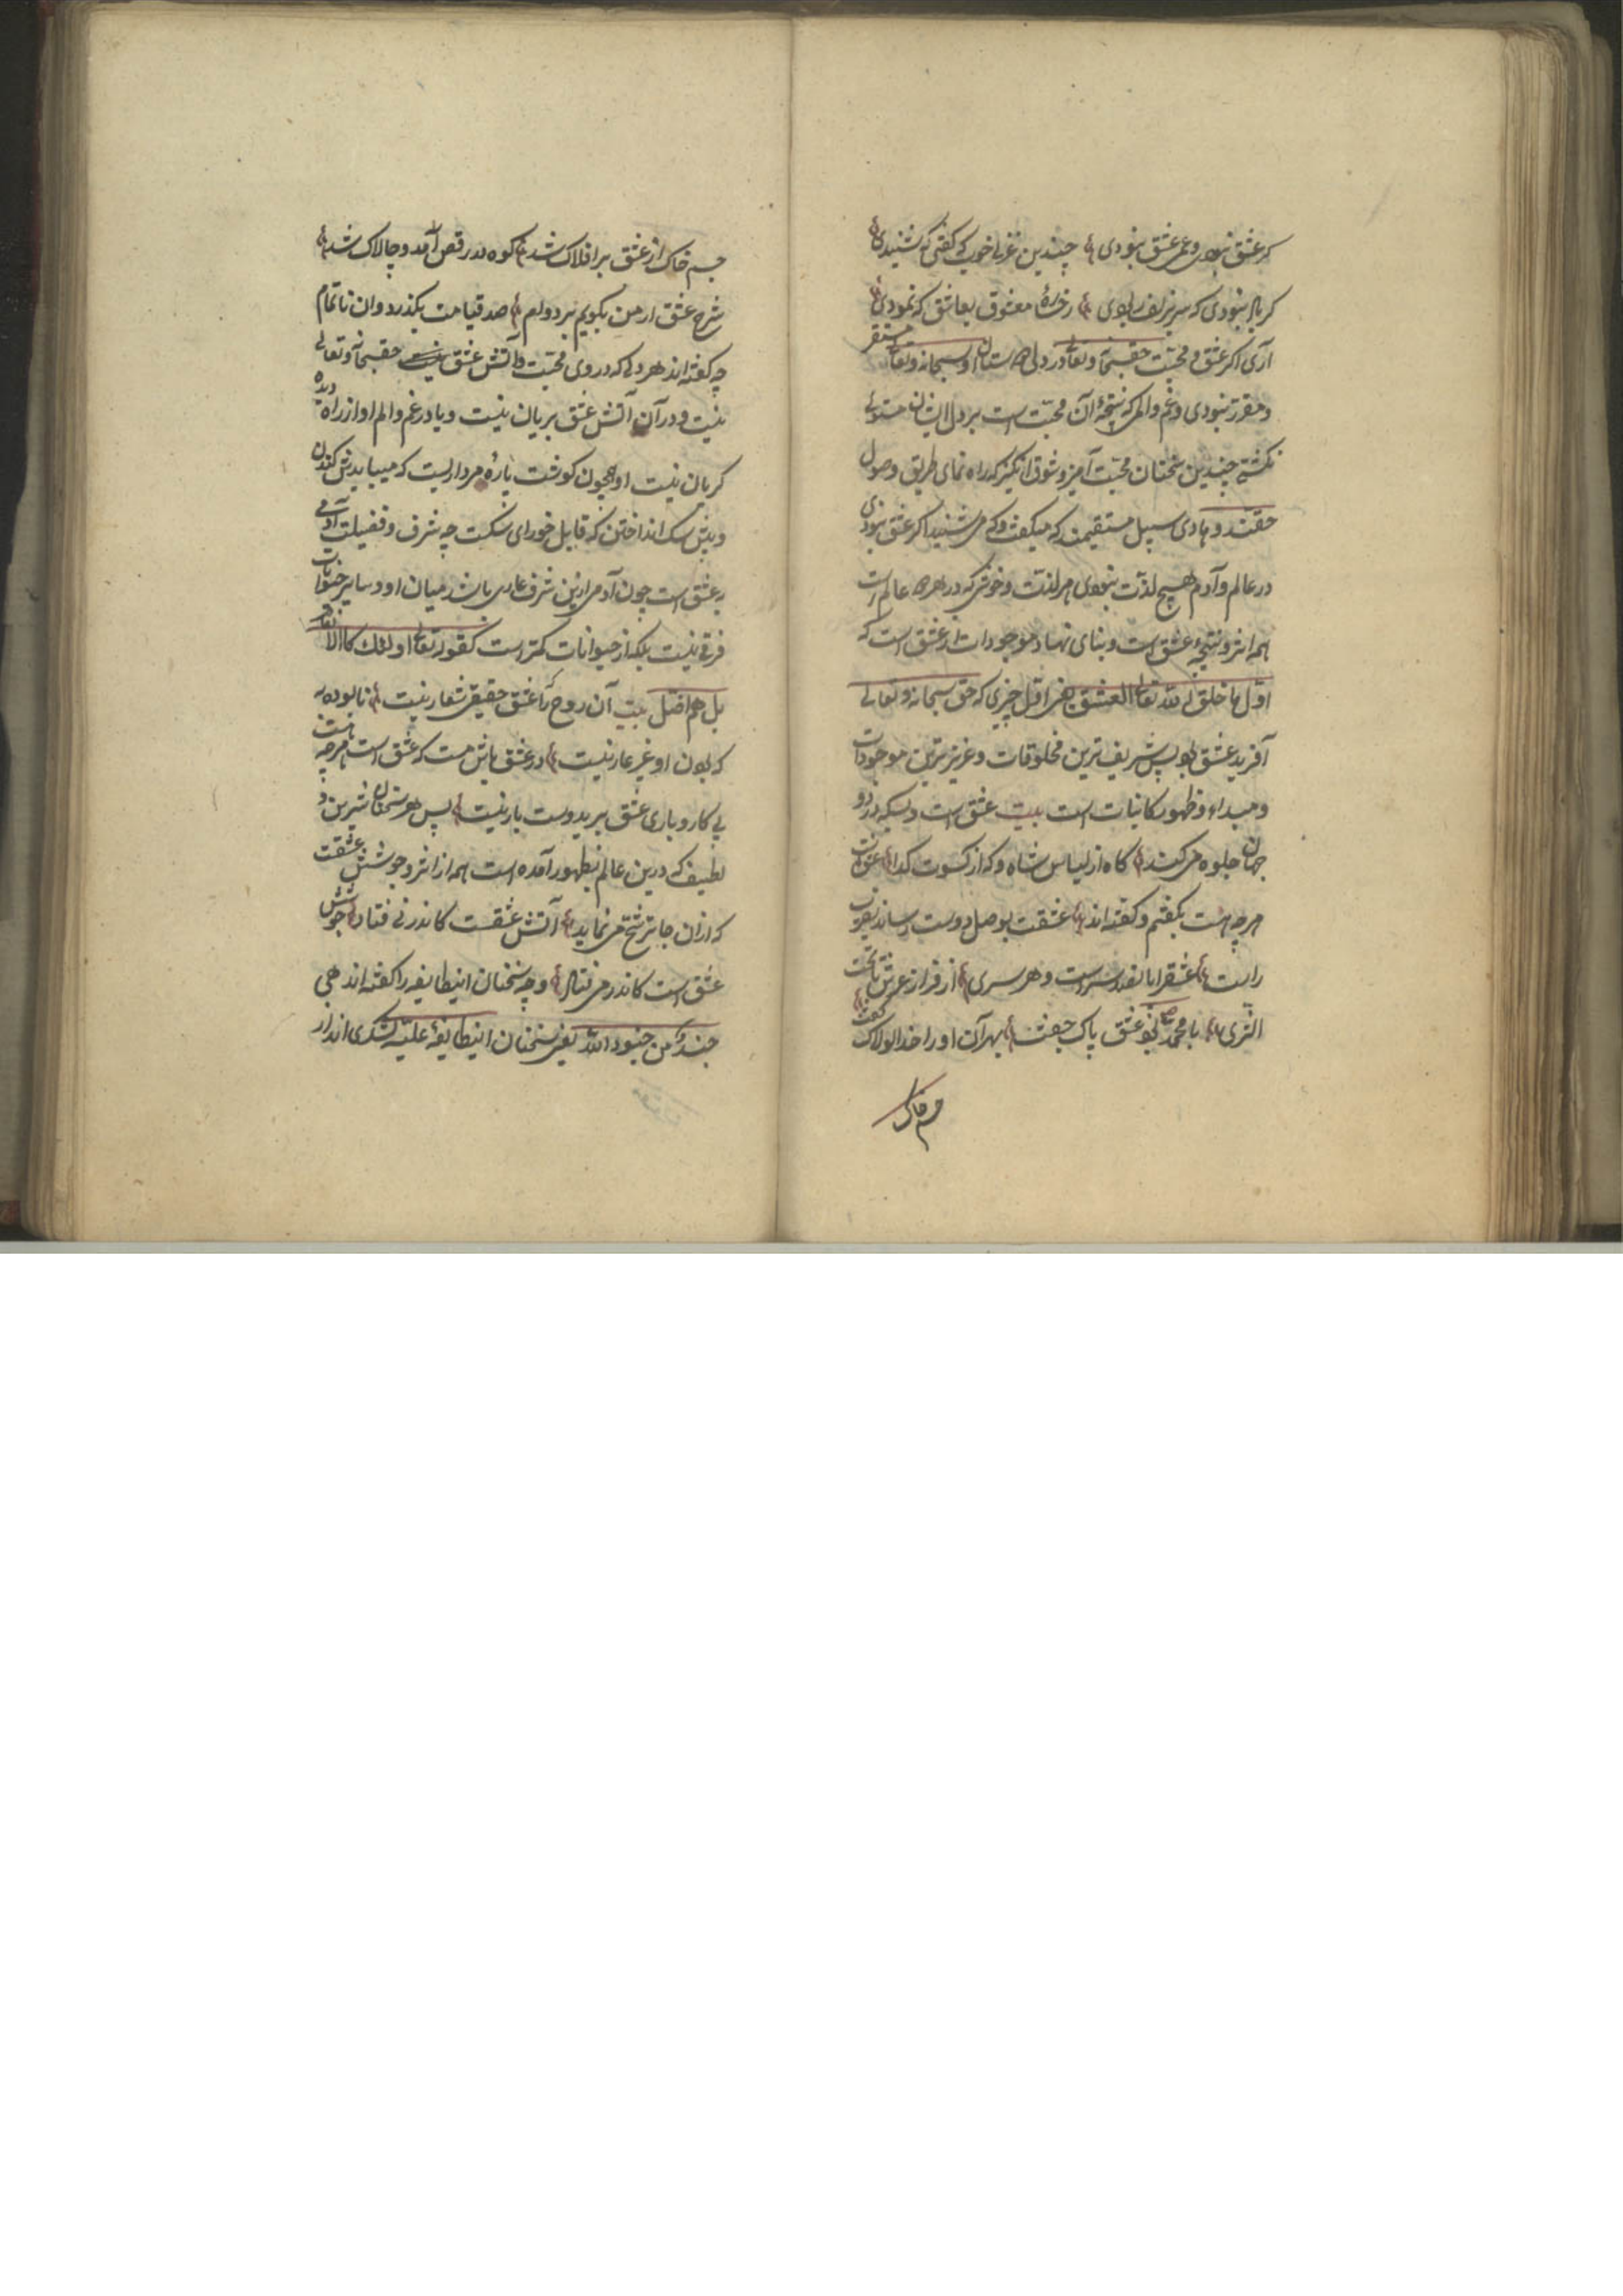 کر عشق نبودی و غم عشق نبودی چندین غزل خوب که کفتی که شنیدی
کر باد نبودی که سر زلف ربودی رخساره معشوق بعاشق که نمودی
آری اکر عشق و محبت حقسبحانه و تعالی در دل دوستان او سبحانه و تعالی مستقر
و مقرر نبودی و غم و المی که نتیجه آن محبت است بر دل ایشان مستولی
نکشتی چندین سخنان محبت آمیز و شوق انکیز که راه نمای طریق وصول
حقند و هادی سبیل مستقیمند که میکفت و که می شنید اکر عشق نبودی
در عالم و آدم هیچ لذت نبودی هر لذت و خوشی که در هر دو عالم است
همه اثر و نتیجه عشق است و بنای نهاد موجودات از عشق است که
اول ما خلق الله تعالی العشق یعنی اول چیزی که حق سبحانه و تعالی
آفرید عشق بود پس شریف ترین مخلوقات و عزیزترین موجودات
و مبداء و ظهور کاینات است بیت عشق است و بس که در دو
جهان جلوه می کند کاه از لباس شاه و که از کسوت کدا
هرچه هست بکفتم و کفته اند عشقت بوصل دوست رساند
راست عشق را با نفد سر است و هر سری از فراز عرش تا تحت
الثری با محمد بود عشق پاک جفت بهر آن او را خدا لولاک کفت
جسم خاک
جسم خاک از عشق بر افلاک شد کوه در رقص آمد و چالاک شد
شرح عشق ار من بکویم بر دوام صد قیامت بکذرد وان ناتمام
چه کفته اند هر دلی که در وی محبت و آتش عشق حقسبحانه و تعالی
نیست و در آن آتش عشق بریان نیست و یا در غم و الم او از راه دیده
کریان نیست او همچون کوشت پاره مرداریست که میباید کندن
و پیش سک انداختن که قابل خورای سکست چه شرف و فضیلت آدمی
به عشق است چون آدمی ازین شرف عاری باشد میان او و سایر حیوانات
فرقی نیست بلکه از حیوانات کمتر است کقوله تعالی اولئک کالانعام
بل هم اضل بیت آن روح را که عشق حقیقی شعار نیست نابوده به
که بودن او غیر عار نیست در عشق باش مست که عشق است هرچه هست
بی کار و باری عشق بر دوست بار نیست پس هر سخنان شیرین و
لطیف که درین عالم بظهور آمده است همه از اثر و جوشش عشقت
که از آن جا ترشح می نماید آتش عشقت کاندر نی فتاد جوشش
عشق است کاندر می فتاد و چه سخنان اینطایفه را کفته اند هی
جند من جنود الله یعنی سخنان اینطایفه علیه لشکری اند از